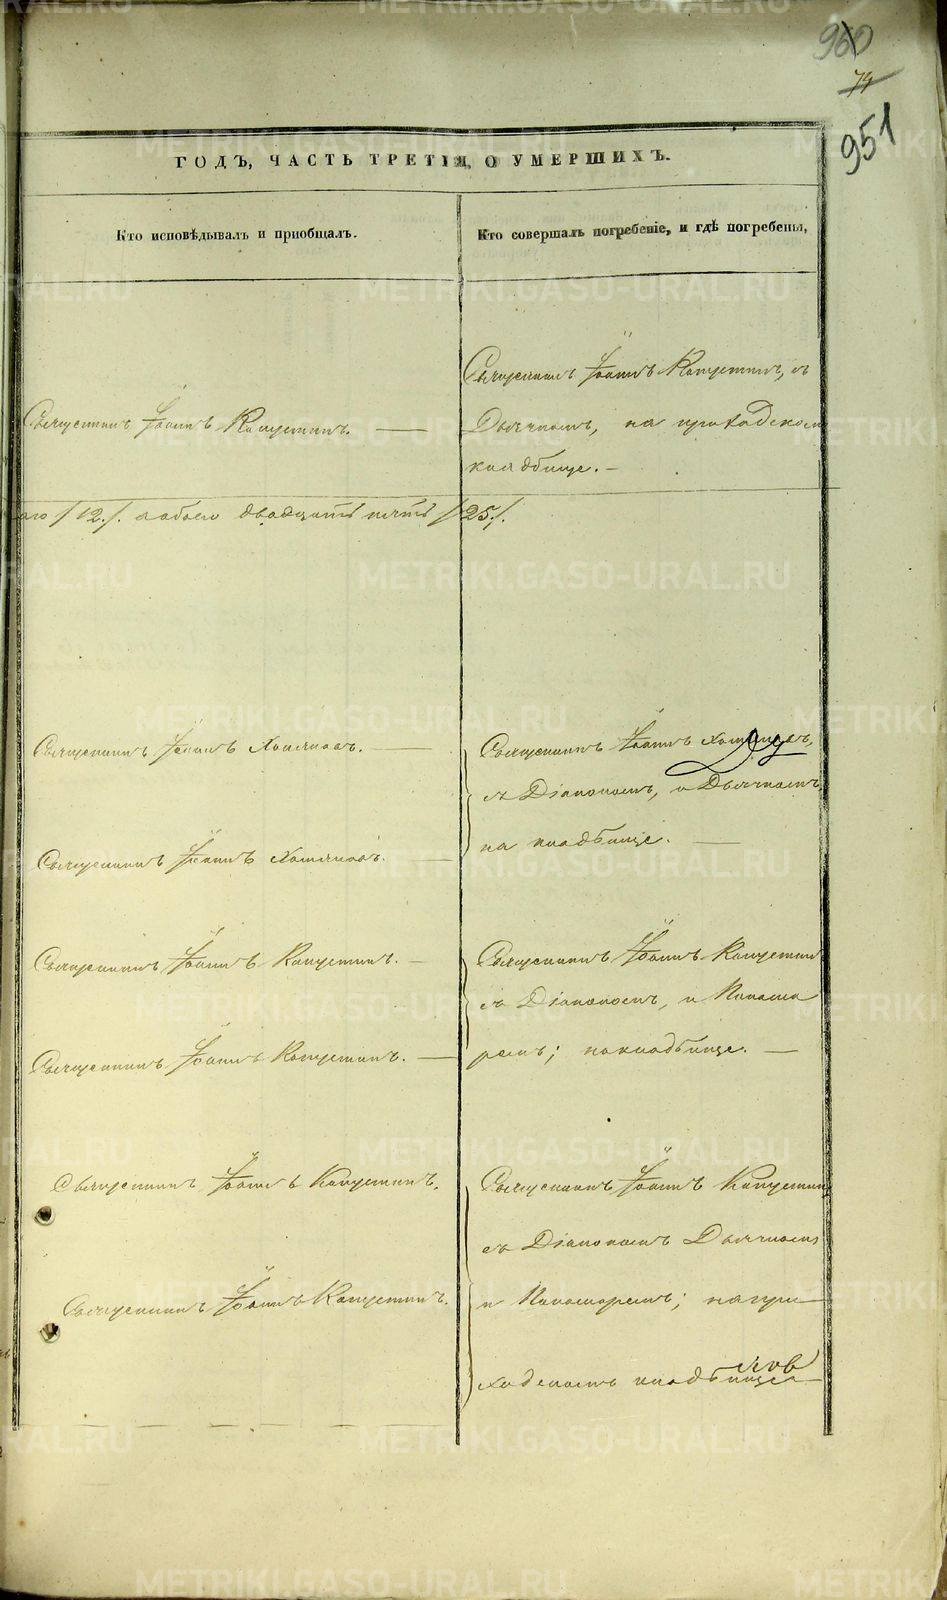 960
74
951
ГОДЪ, ЧАСТЬ ТРЕТІЯ, О УМЕРШИХЪ.
Кто исповѣдывалъ и пріобщалъ.
Кто совершалъ погребеніе, и гдѣ погребены,
Священникъ Іоаннъ Капустинъ, съ
Священникъ Іоаннъ Капустинъ.
Дьячкомъ, на приходскомъ
кладбище.
аго /12./. а обоего двадцать пять /25./.
Священникъ Іоаннъ Хомяковъ.
Священникъ Іоаннъ Хомяковъ,
съ Діакономъ, и Дьячкомъ
на кладбище.
Священникъ Іоаннъ Хомяковъ.
Священникъ Іоаннъ Капустинъ.
Священникъ Іоаннъ Капустин
съ Діакономъ, и Понома
ремъ; на кладбище.
Священникъ Іоаннъ Капустинъ.
Священникъ Іоаннъ Капустинъ.
Священникъ Іоаннъ Капустин
съ Діакономъ Дьячкомъ
Священникъ Іоаннъ Капустинъ.
и Пономаремъ; на при
ходскомъ кладбище
METRIKI.GASO-URAL.RU